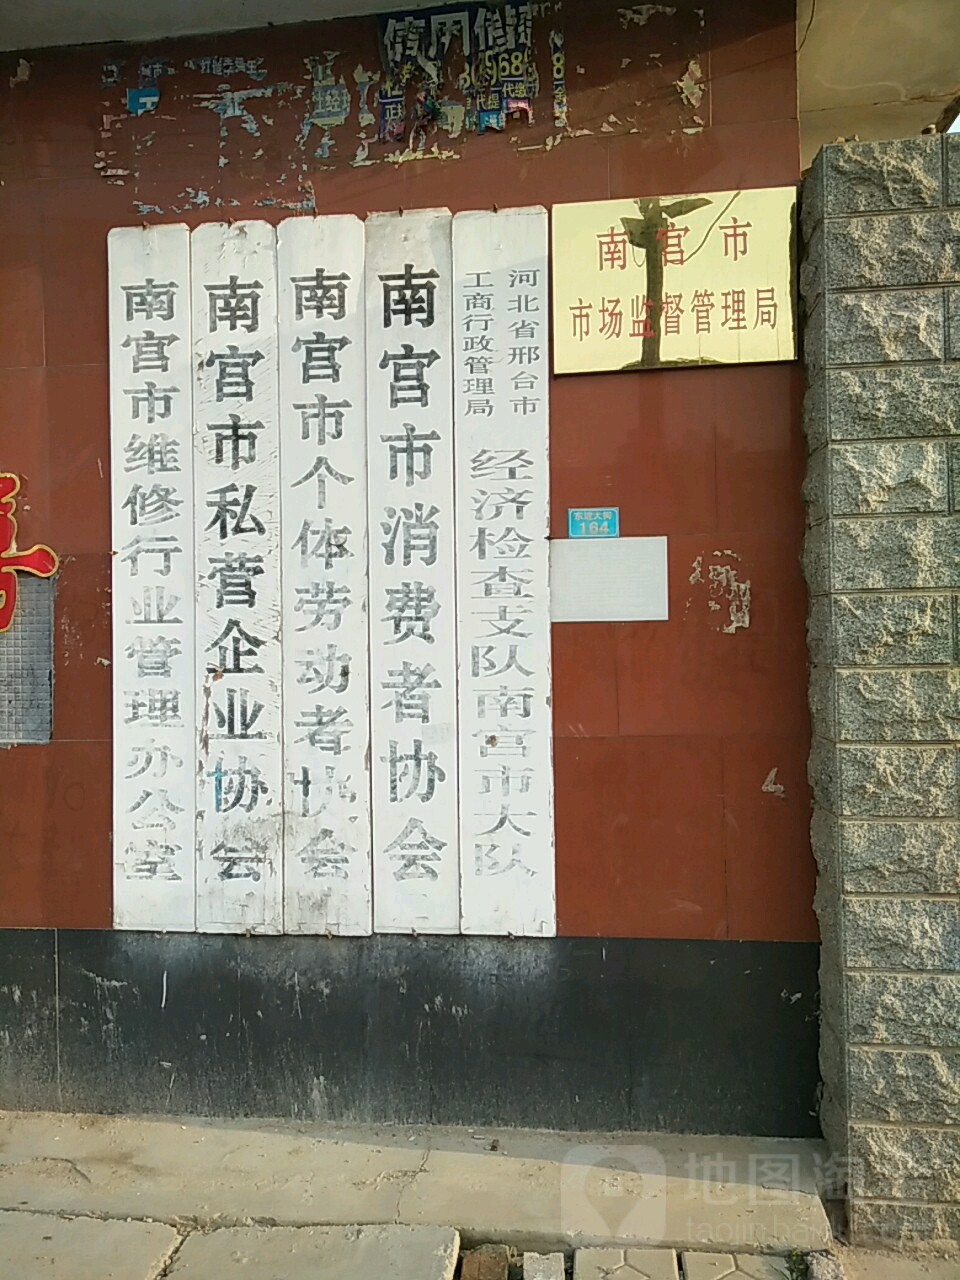 信用
南宫市
市场监督管理局
河北省邢台市
工商行政管理局
经济检查支队南宫市大队
南宫市消费者协会
南宫市个体劳动者协会
南宫市私营企业协会
南宫市维修行业管理办公室
164
地图淘